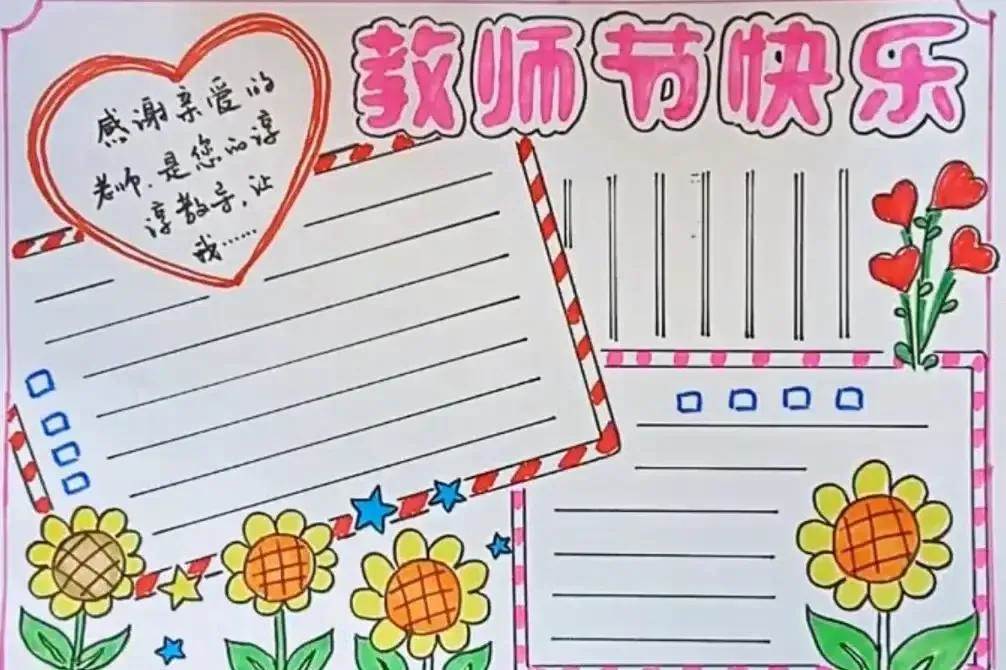 教师节快乐
感谢亲爱的
老师，是您的谆
谆教导，让
我……